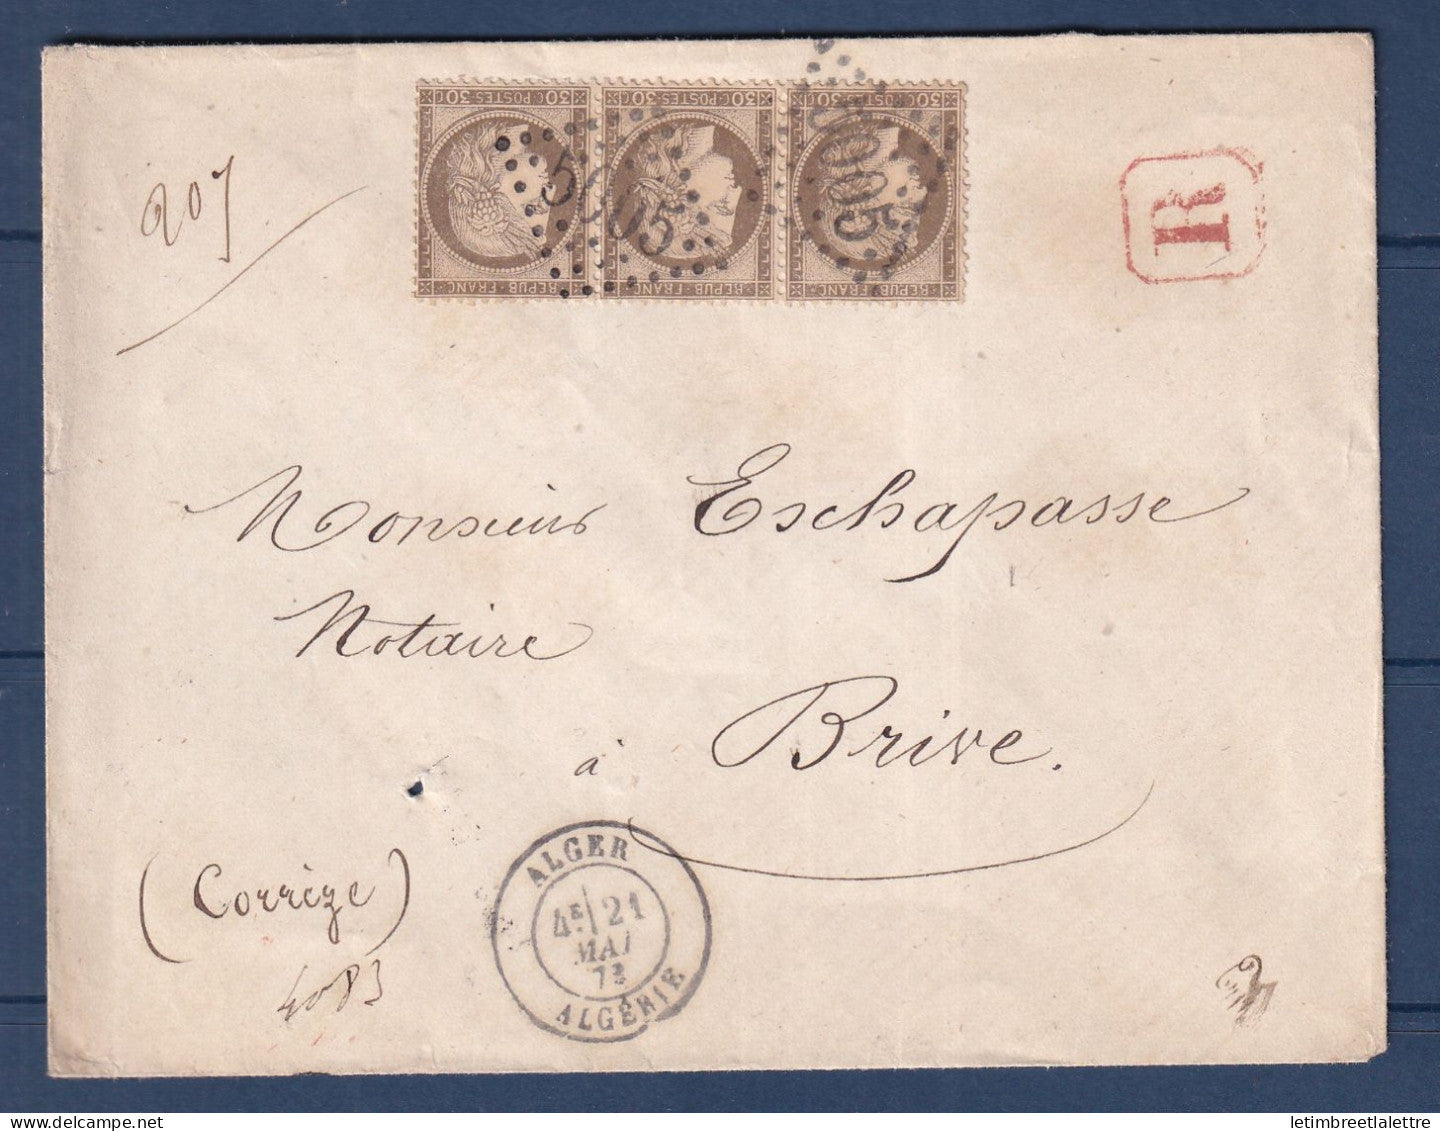 30 C POSTES 30 C
30 C POSTES 30 C
30 C POSTES 30 C
5005
5005
REPUB · FRANC ·
REPUB · FRANC ·
REPUB · FRANC ·
R
207
Monsieur Eschapasse
Notaire
à Brive.
(Corrèze)
4083
ALGER
4E 21
MAI
73
ALGÉRIE
letimbreetlalettre